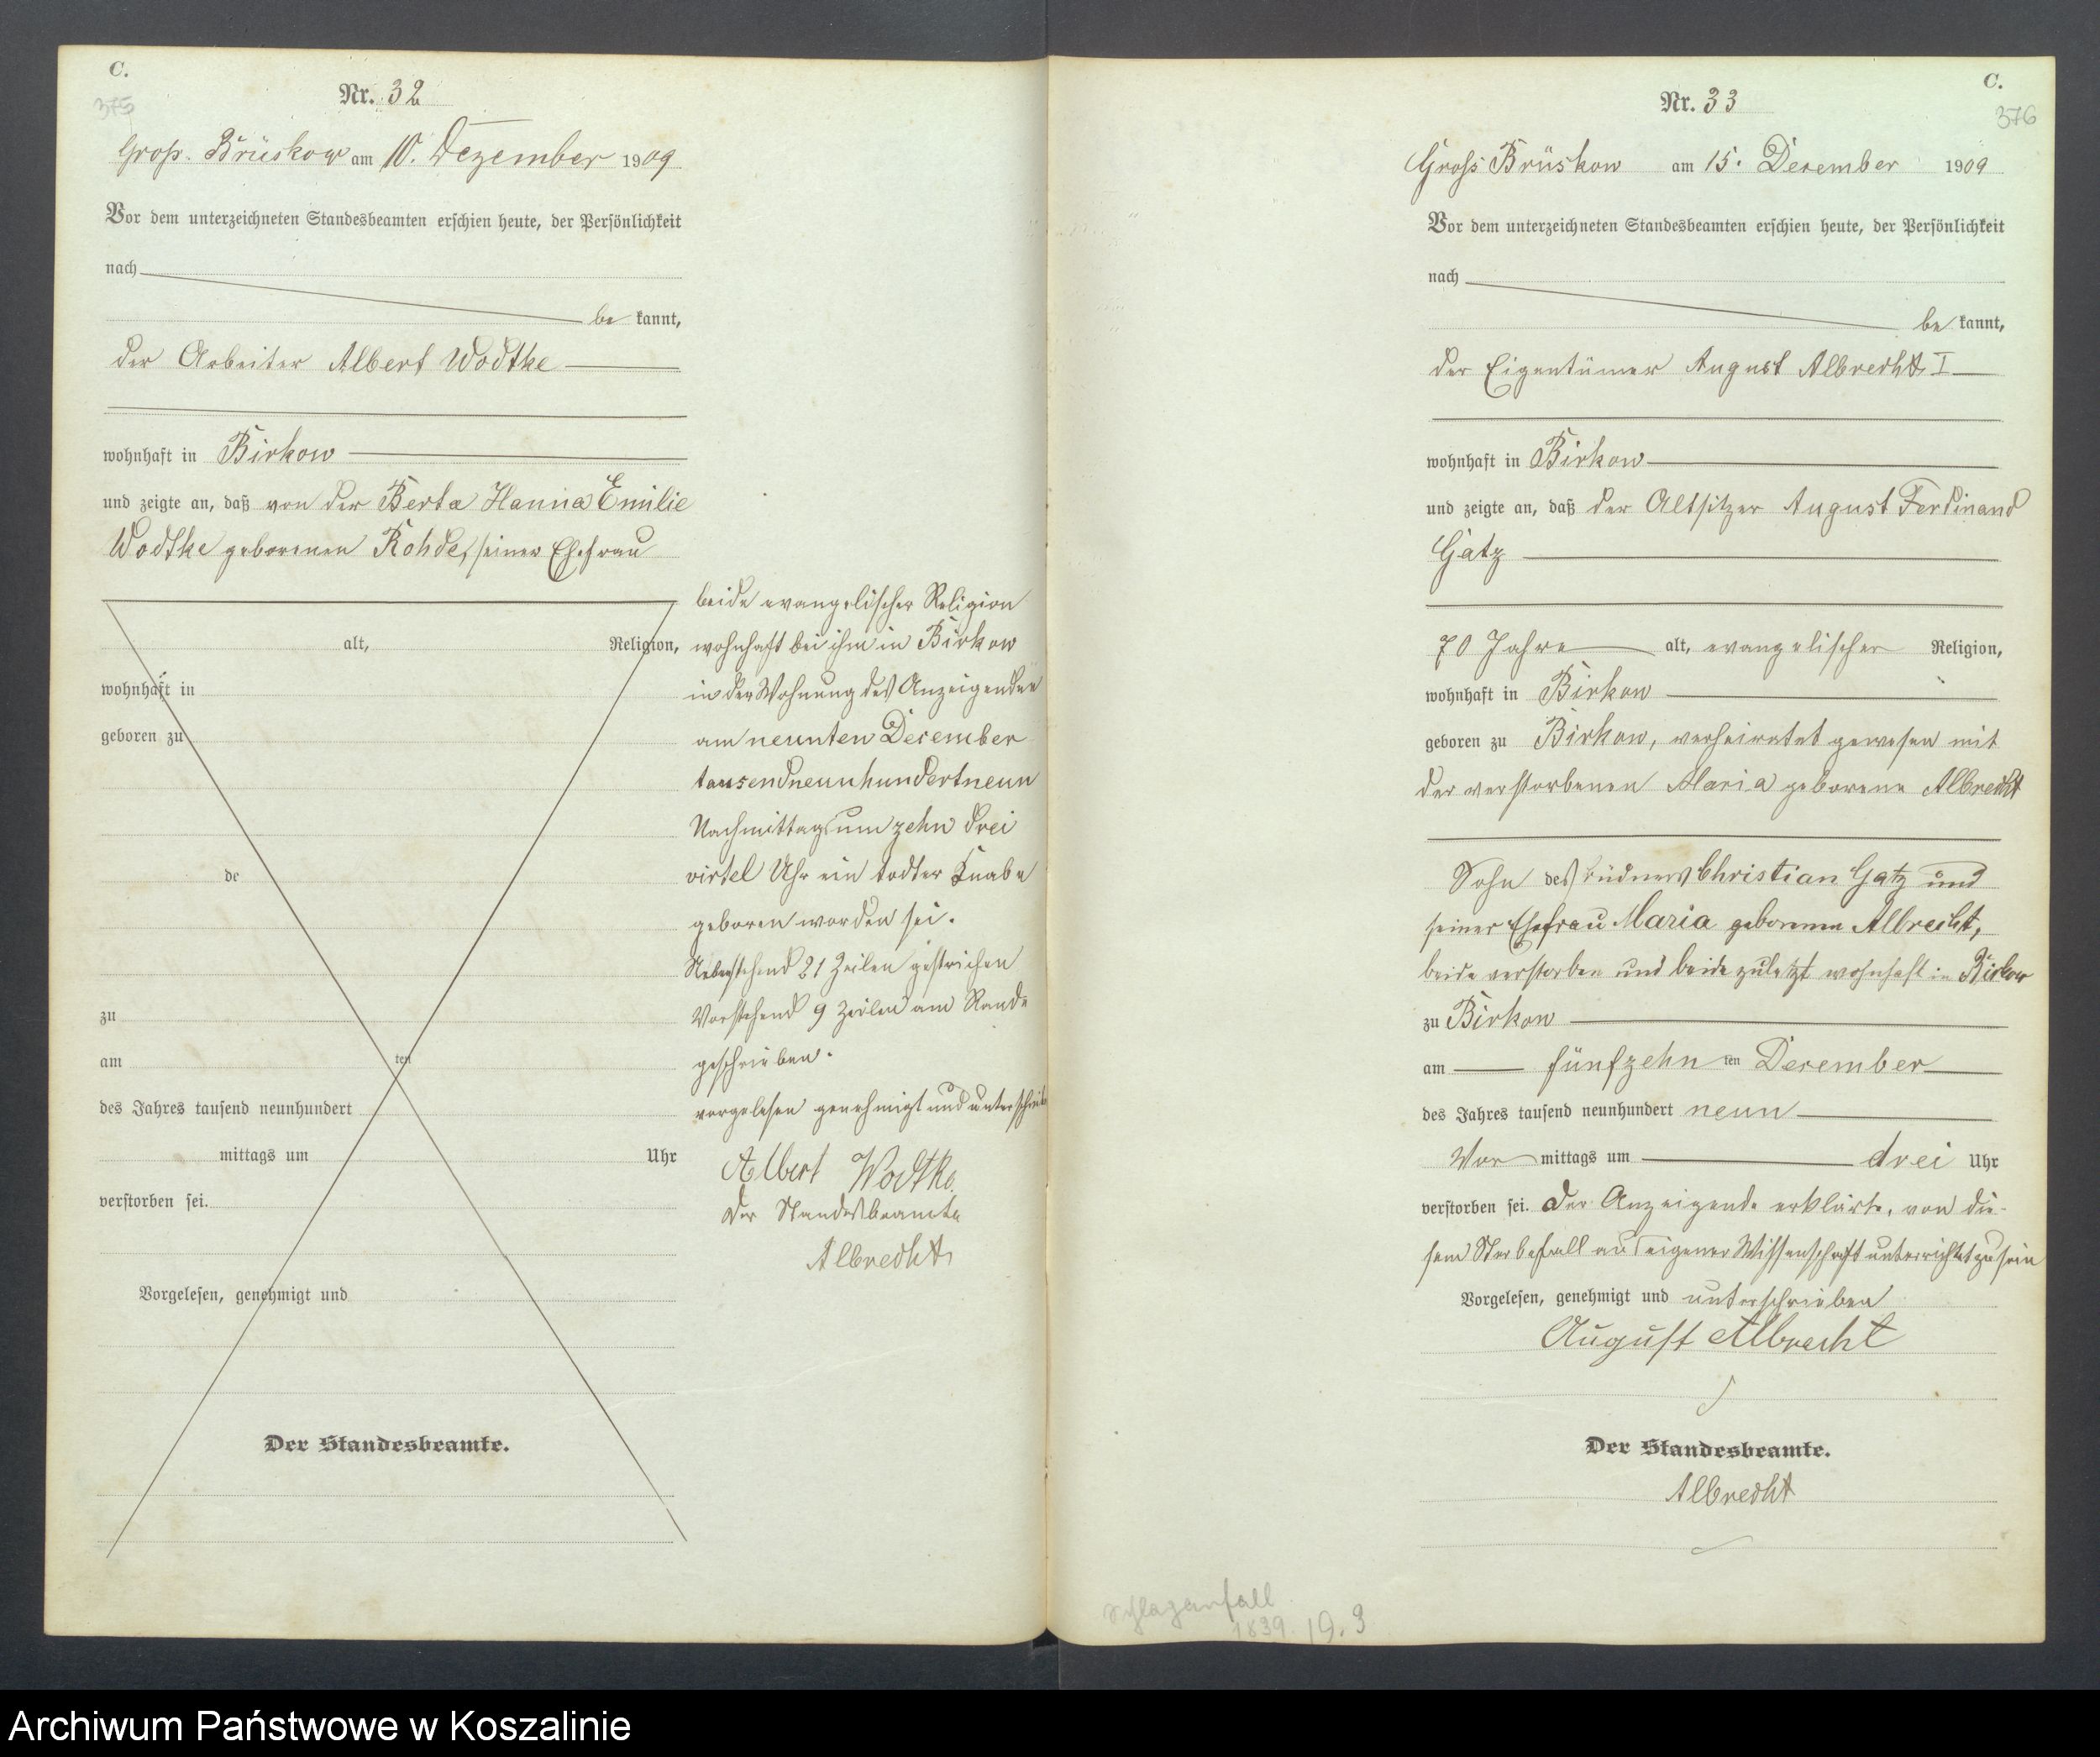 C.
375
Nr. 32
Gross. Brüskow am 10. Dezember 1909
Vor dem unterzeichneten Standesbeamten erschien heute, der Persönlichkeit
nach
be kannt,
der Arbeiter Albert Wodtke
wohnhaft in Birkow
und zeigte an, daß von der Berta Hanna Emilie
Wodtke geborenen Rohde, seiner Ehefrau
alt, Religion,
wohnhaft in
geboren zu
de
zu
am ten
des Jahres tausend neunhundert
mittags um Uhr
verstorben sei.
Vorgelesen, genehmigt und
Der Standesbeamte.
beide evangelischer Religion
wohnhaft bei ihm in Birkow
in der Wohnung des Anzeigenden
am neunten December
tausendneunhundertneun
Nachmittags um zehn drei
virtel Uhr ein todter Knabe
geboren worden sei.
Nebenstehend 21 Zeilen gestrichen
Vorstehend 9 Zeilen am Rande
geschrieben.
vorgelesen genehmigt und unterschrieb
Albert Wodtke.
Der Standesbeamte
Albrecht
C.
376
Nr. 33
Gross Brüskow am 15. December 1909
Vor dem unterzeichneten Standesbeamten erschien heute, der Persönlichkeit
nach
be kannt,
der Eigentümer August Albrecht I
wohnhaft in Birkow
und zeigte an, daß der Altsitzer August Ferdinand
Gatz
70 Jahre alt, evangelischer Religion,
wohnhaft in Birkow
geboren zu Birkow, verheiratet gewesen mit
der verstorbenen Maria geborene Albrecht
Sohn des Büdners Christian Gatz und
seiner Ehefrau Maria geborenen Albrecht,
beide verstorben und beide zuletzt wohnhaft in Birkow
zu Birkow
am fünfzehn ten December
des Jahres tausend neunhundert neun
Vor mittags um drei Uhr
verstorben sei. Der Anzeigende erklärte, von die-
sem Sterbefall aus eigener Wissenschaft unterrichtet zu sein
Vorgelesen, genehmigt und unterschrieben
August Albrecht
Der Standesbeamte.
Albrecht
Schlaganfall
1839. 19. 3
Archiwum Państwowe w Koszalinie